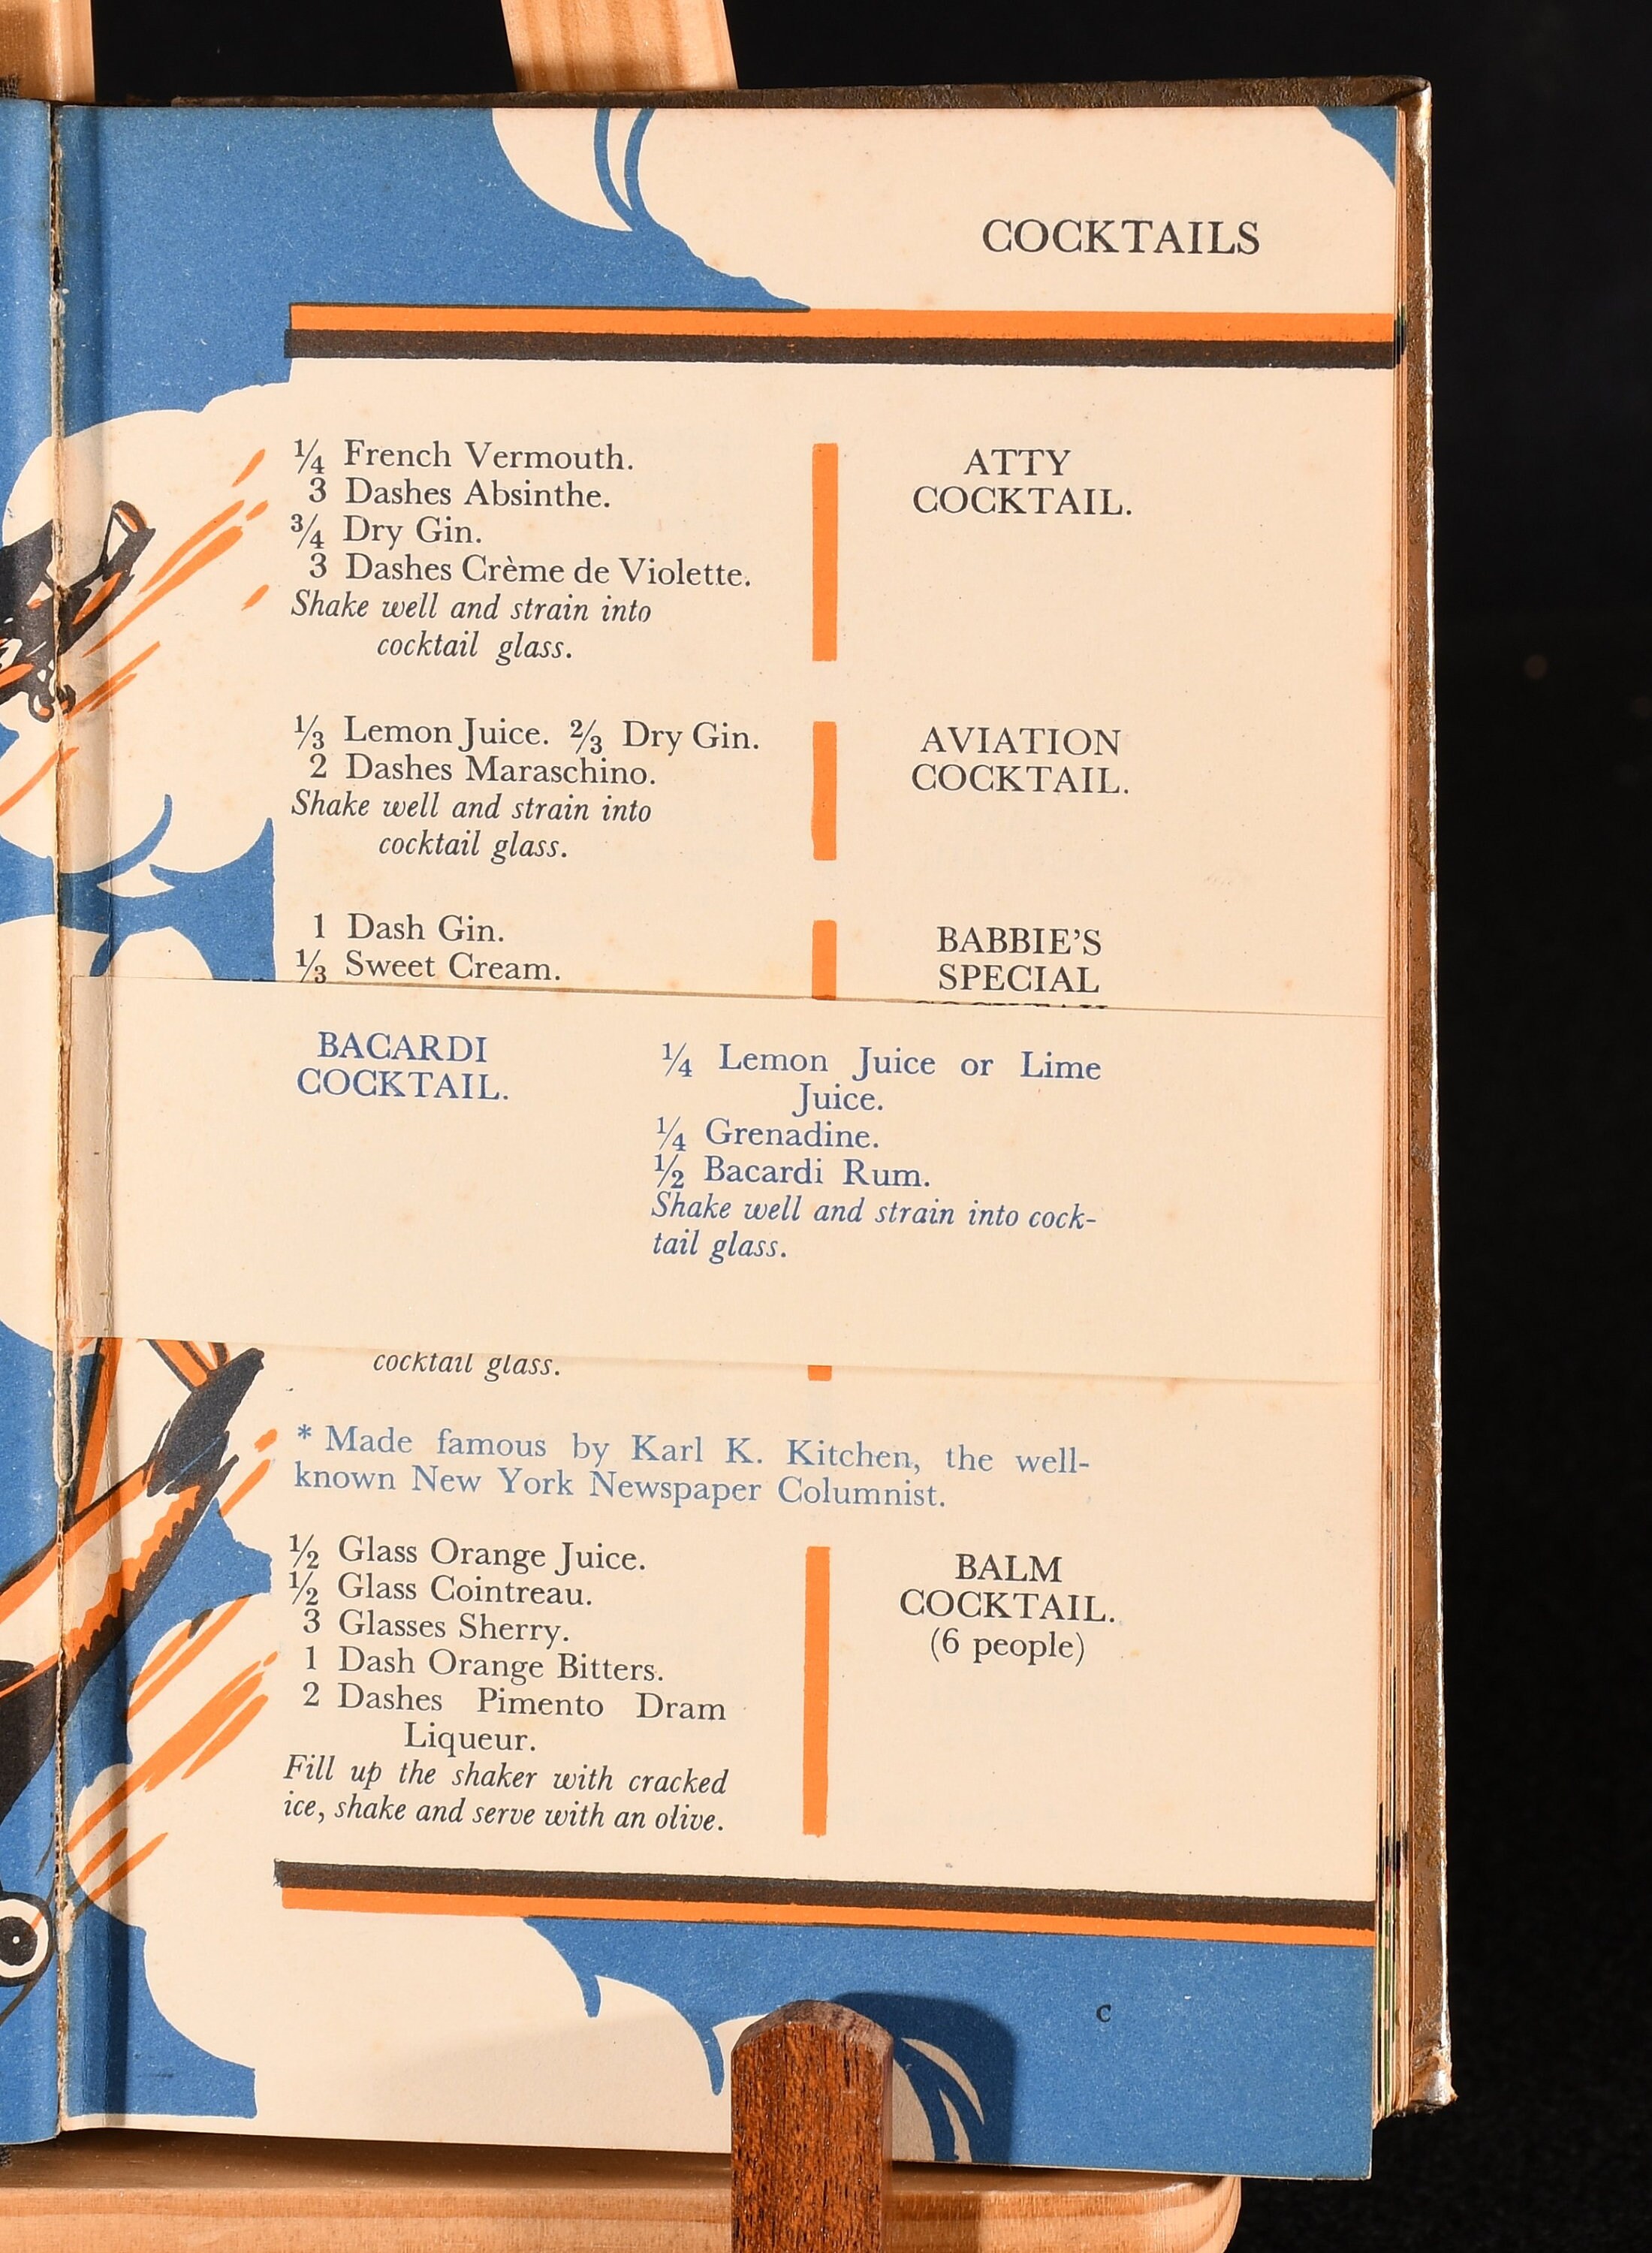 COCKTAILS
¼ French Vermouth.
3 Dashes Absinthe.
¾ Dry Gin.
3 Dashes Crème de Violette.
Shake well and strain into
cocktail glass.
ATTY
COCKTAIL.
⅓ Lemon Juice. ⅔ Dry Gin.
2 Dashes Maraschino.
Shake well and strain into
cocktail glass.
AVIATION
COCKTAIL.
1 Dash Gin.
⅓ Sweet Cream.
BABBIE'S
SPECIAL
BACARDI
COCKTAIL.
¼ Lemon Juice or Lime
Juice.
¼ Grenadine.
½ Bacardi Rum.
Shake well and strain into cock-
tail glass.
cocktail glass.
* Made famous by Karl K. Kitchen, the well-
known New York Newspaper Columnist.
½ Glass Orange Juice.
½ Glass Cointreau.
3 Glasses Sherry.
1 Dash Orange Bitters.
2 Dashes Pimento Dram
Liqueur.
Fill up the shaker with cracked
ice, shake and serve with an olive.
BALM
COCKTAIL.
(6 people)
C